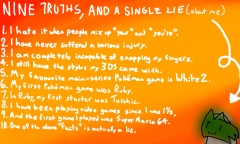 NINE TRUTHS, AND A SINGLE LIE (about me)
1. I hate it when people mix up "your" and "you're".
2. I have never suffered a serious injury.
3. I am completely incapable of snapping my fingers.
4. I still have the stylus my 3DS came with.
5. My favourite main-series Pokémon game is White 2.
6. My first Pokémon game was Ruby.
7. In Ruby, my first starter was Torchic.
8. I have been playing video games since I was 1½,
9. And the first game I played was Super Mario 64.
10. One of the above "facts" is actually a lie.